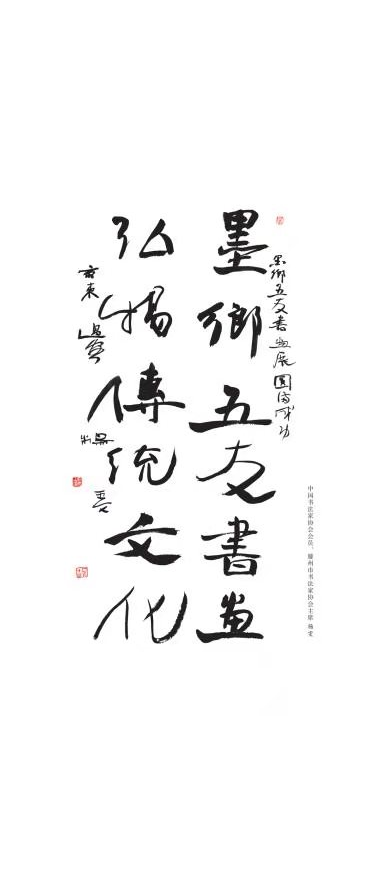 中国书法家协会会员、滕州市书法家协会主席
墨鄉五友書畫展圓滿成功
墨鄉五友書畫
弘揚傳統文化